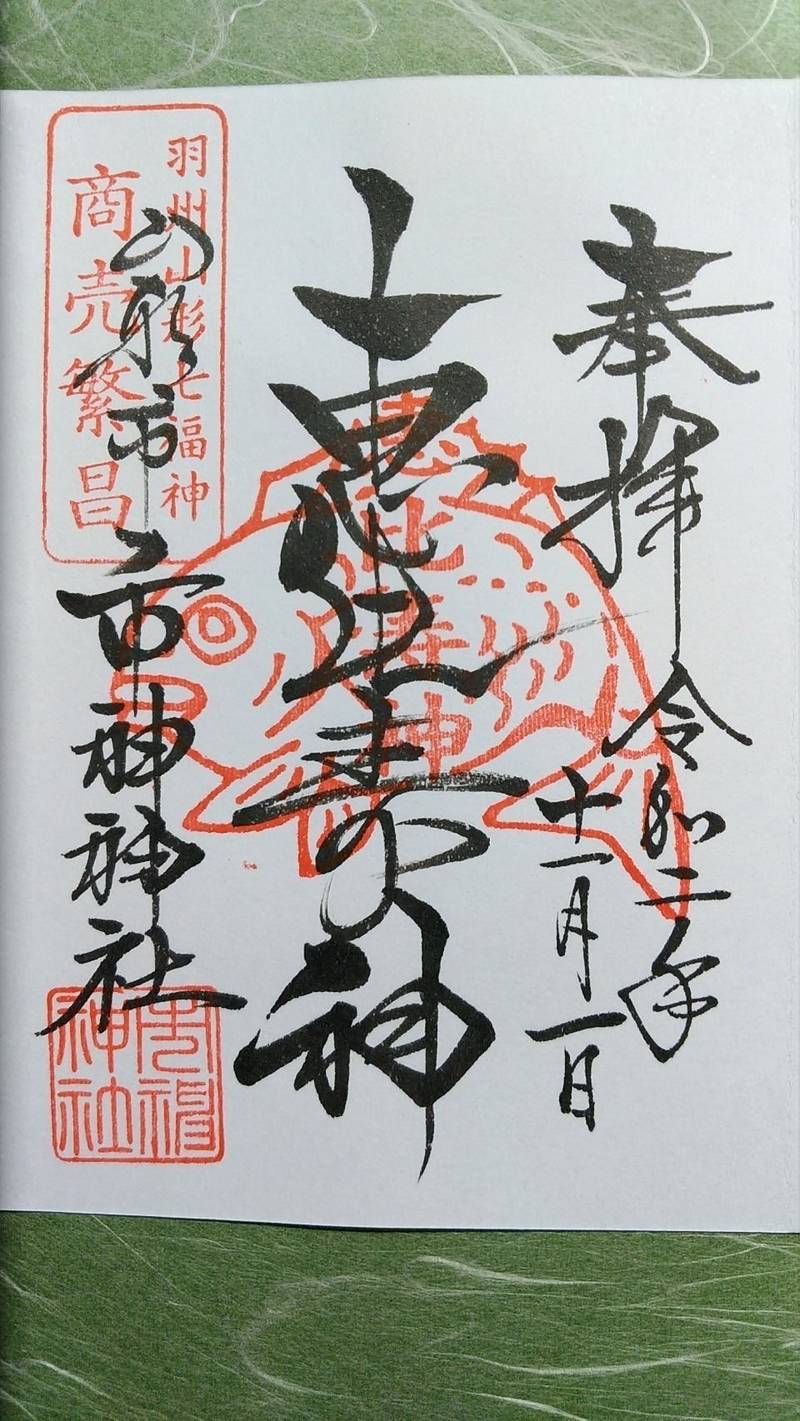 奉拝
令和二年
十一月一日
恵比寿神
羽州山形七福神
商売繁昌
山形市
市神神社
恵比寿神
市神神社